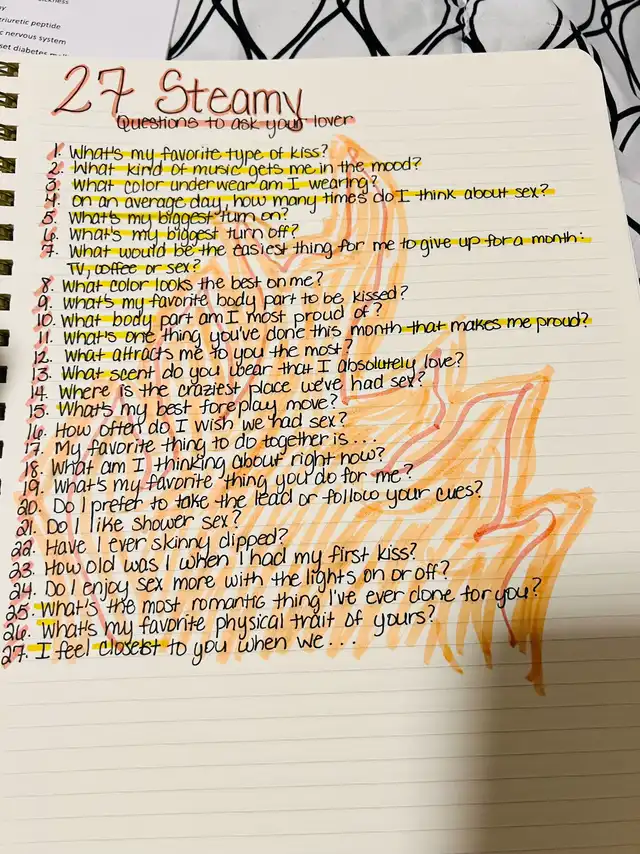 iuretic peptide
c nervous system
set diabetes
27 Steamy
Questions to ask your lover
1. What's my favorite type of kiss?
2. What kind of music gets me in the mood?
3. What color underwear am I wearing?
4. on an average day, how many times do I think about sex?
5. What's my biggest turn on?
6. What's my biggest turn off?
7. What would be the easiest thing for me to give up for a month:
TV, coffee or sex?
8. What color looks the best on me?
9. What's my favorite body part to be kissed?
10. What body part am I most proud of?
11. What's one thing you've done this month that makes me proud?
12. What attracts me to you the most?
13. What scent do you wear that I absolutely love?
14. Where is the craziest place we've had sex?
15. What's my best foreplay move?
16. How often do I wish we had sex?
17. My favorite thing to do together is...
18. What am I thinking about right now?
19. What's my favorite thing you do for me?
20. Do I prefer to take the lead or follow your cues?
21. Do I like shower sex?
22. Have I ever skinny dipped?
23. How old was I when I had my first kiss?
24. Do I enjoy sex more with the lights on or off?
25. What's the most romantic thing I've ever done for you?
26. What's my favorite physical trait of yours?
27. I feel closest to you when we...